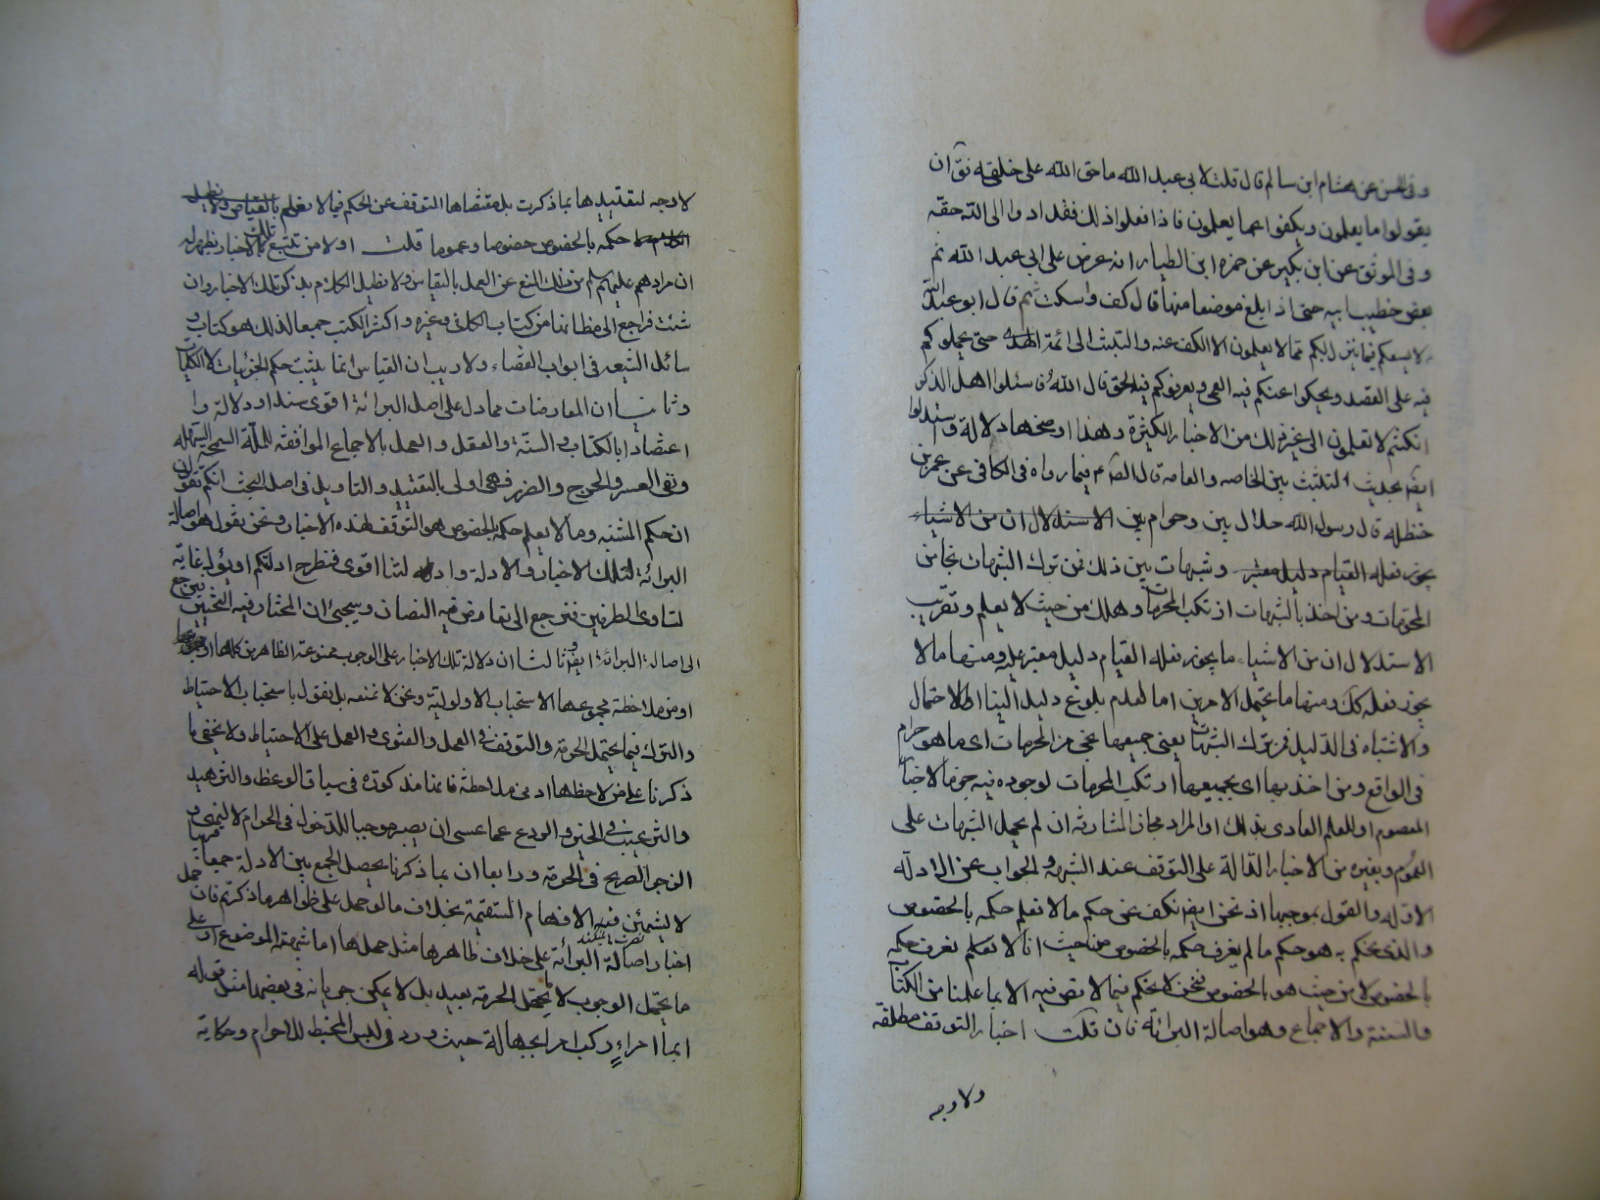 وفى الحسن عن هشام ابن سالم قال قلت لابى عبد الله ما حق الله على خلقه فق ان
يقولوا ما يعلمون ويكفوا عما يعلمون فاذا فعلوا ذلك فقد ادوا الى الله حقه
وفى الموثق عن ابن بكير عن حمزه ابن الطيار انه عرض على ابى عبد الله ثم
بعض خطب ابيه حتى اذا بلغ موضعا منها قال كف واسكت ثم قال ابو عبد الله
لا يسعكم فيما ينزل بكم مما لا يعلمون الا الكف عنه والتثبت الى ائمة الهدى حتى يحملوكم
فيه على القصد ويجلوا عنكم فيه العمى ويعرفوكم فيه الحق قال الله فاسئلوا اهل الذكر
انكنتم لا تعلمون الى غير ذلك من الاخبار الكثيرة وهذا اوضحها دلالة واستدلوا
ايض بحديث التثليث بين الخاصه والعامه قال الص م فيما رواه فى الكافى عن عمر بن
حنظله قال رسول الله حلال بين وحرام بين الاستدلال ان من الاشياء
يجوز فعله لقيام دليل معتبر وشبهات بين ذلك فمن ترك الشبهات نجا من
المحرمات ومن اخذ بالشبهات ارتكب المحرمات وهلك من حيث لا يعلم وتقريب
الاستدلال ان من الاشياء ما يجوز فعله لقيام دليل معتبر عليه ومنها ما لا
يجوز فعله كك ومنها ما يحتمل الامرين اما لعدم بلوغ دليل الينا او لاحتمال
والاشتباه فى الدليل فمن ترك الشبهات يعنى جميعها نجى من المحرمات اى ما هو حرام
فى الواقع ومن اخذ بها اى بجميعها ارتكب المحرمات لوجوده فيه جزما لاخبار
المعصوم او للعلم العادى بذلك او المراد مجاز المشارفة ان لم يحمل الشبهات على
العموم وبغيره من الاخبار الدالة على التوقف عند الشبهة والجواب عن الادله
الاوله والقول بموجبها اذ نحن ايض نكف عن حكم ما لا نعلم حكمه بالخصوص
والذى نحكم به هو حكم ما لم يعرف حكمه بالخصوص من حيث انا لا نعلم نعرف حكمه
بالخصوص لا من حيث هو بالخصوص فنحن لا نحكم فيما لا نص فيه الا بما علمنا من الكتاب
والسنة والاجماع وهو اصالة البرائة فان قلت اخبار التوقف مطلقة
ولا وجه
لا وجه لتقييدها بما ذكرت بل مقتضاها التوقف عن الحكم فيما لا نعلم
حكمه بالخصوص خصوصا وعموما قلت اولا من تتبع تلك الاخبار يظهر له
ان مرادهم عليهم السلم من ذلك المنع عن العمل بالقياس ولا نطيل الكلام بذكر تلك الاخبار وان
شئت فراجع الى مظانها من كتاب الكافى وغيره واكثر الكتب جمعا لذلك هو كتاب و
سائل الشيعه فى ابواب القضاء ولا ريب ان القياس انما يثبت حكم الجزئيات لا الكليات
وثانيا ان المعارضات مما دل على اصل البرائة اقوى سندا ودلالة و ا
اعتضادا بالكتاب والسنة والعقل والعمل بالاجماع الموافقه للملة السمحة السهله
ونفى العسر والحرج والضرر فهى اولى بالتقييد والتاويل فى اصل البحث انكم تقولون
ان حكم المشتبه وما لا يعلم حكمه بالخصوص هو التوقف لهذه الاخبار ونحن نقول هو اصالة
البرائة لتلك الاخبار والادلة وادلتنا اقوى فنطرح ادلتكم او يؤل بغاية
لتساوى الطرفين فنرجع الى تعارض فيه النصان وسيجئ ان المختار فيه التخيير يرجع
الى اصالة البرائة ايض وثالثا ان دلالة تلك الاخبار على الوجوب ممنوعة الظاهر من كلها او
او من ملاحظة مجموعها الاستحباب الاولوية ونحن لا نمنعه بل نقول باستحباب الاحتياط
والترك فيما يحتمل الحرمة والتوقف فى العمل والفتوى والعمل على الاحتياط ولا يخفى ما
ذكرنا على من لاحظها ادنى ملاحظة فانها مذكورة فى سياق الوعظ والتزهيد
والترغيب فى الخير والورع عما عسى ان يصير موجبا للدخول فى الحرام لا للنهى و
الزجر الصريح فى الحرمة ورابعا ان بما ذكرنا يحصل الجمع بين الادلة جميعا
لا يشمئز فيه الافهام المستقيمة بخلاف ما لو حمل على ظواهر ما ذكرتم فان حمل
اخبار اصالة البرائة على خلاف ظاهرها مثل حملها اما شبهة الموضوع او على
ما يحتمل الوجوب لا يحتمل الحرمة بعيد بل لا يمكن جريانه فى بعضها مثل قوله
ايما امرء ركب امرا بجهالة حيث ورد فى لبس المخيط للاحرام وحكاية